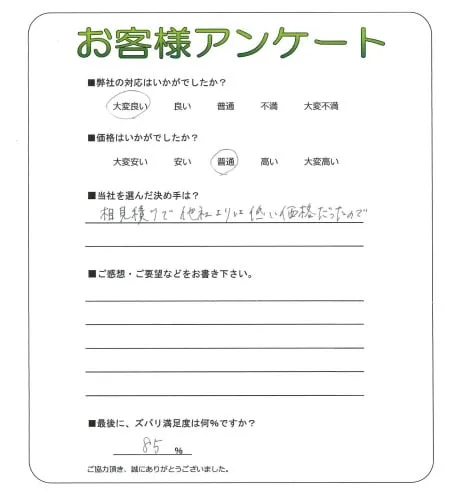 お客様アンケート
■弊社の対応はいかがでしたか?
大変良い 良い 普通 不満 大変不満
■価格はいかがでしたか?
大変安い 安い 普通 高い 大変高い
■当社を選んだ決め手は?
相見積りで他社よりは低い価格だったので
■ご感想・ご要望などをお書き下さい。
■最後に、ズバリ満足度は何%ですか?
85 %
ご協力頂き、誠にありがとうございました。